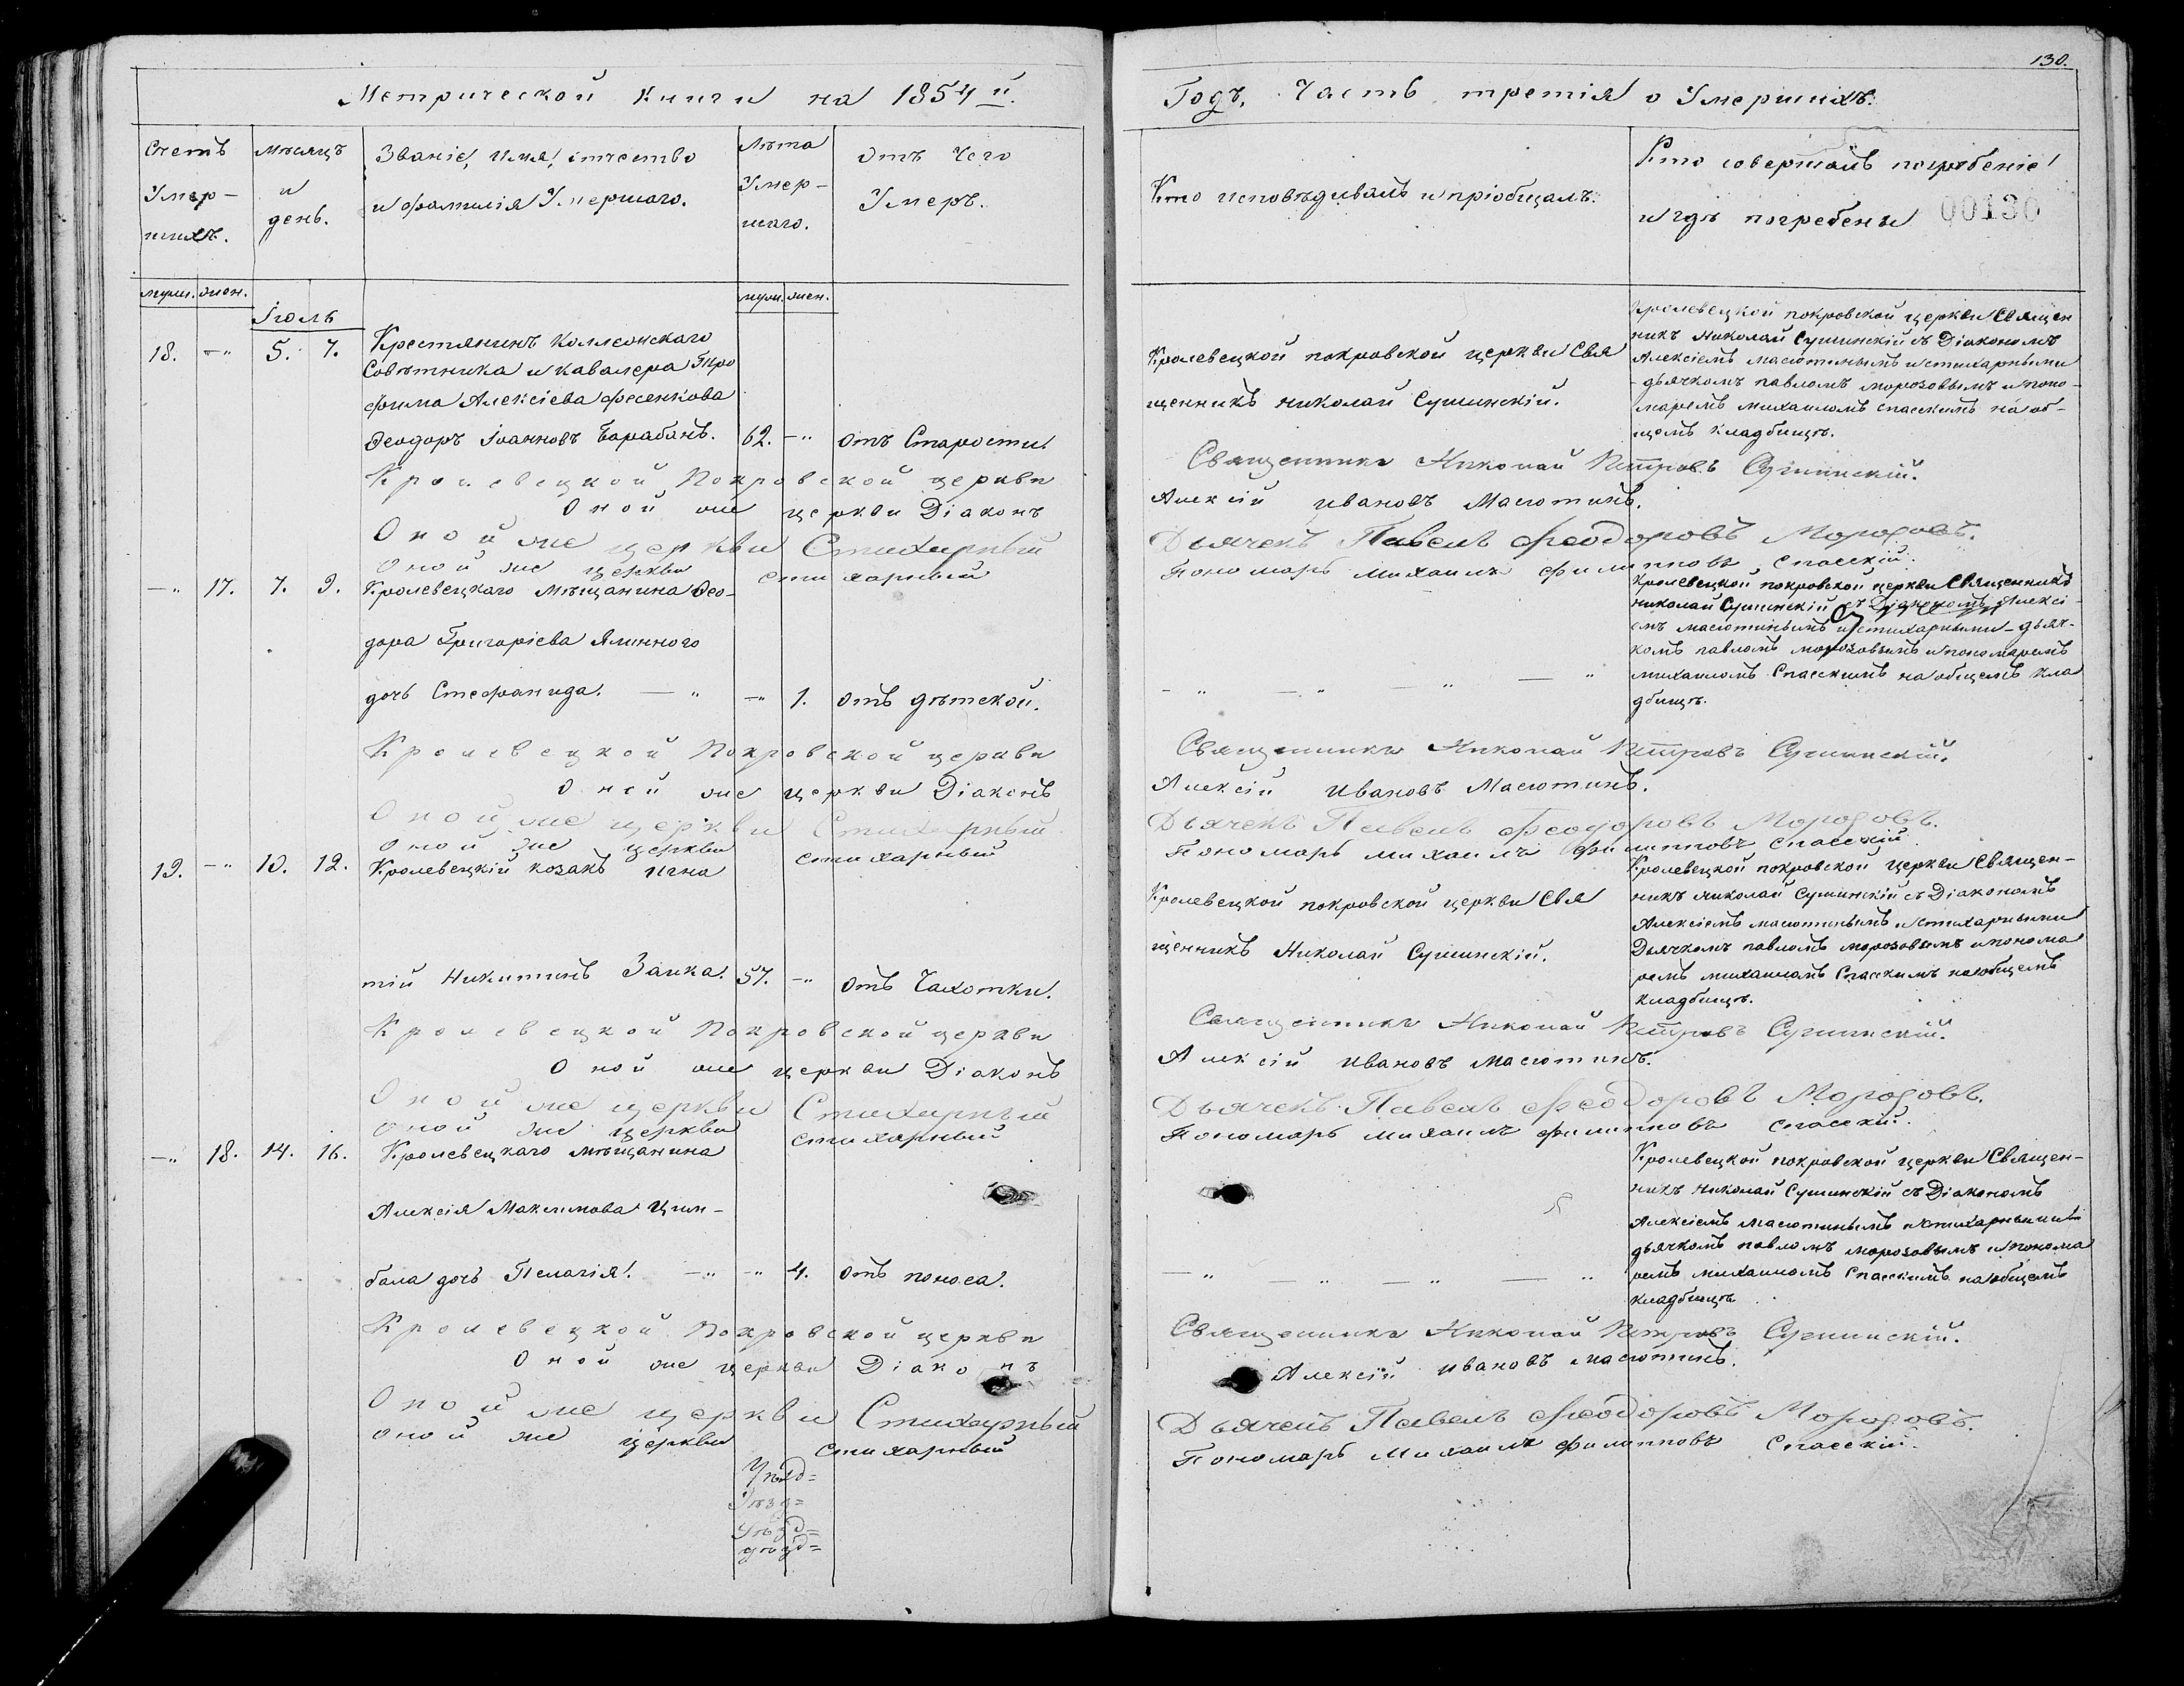 130.
Метрической Книги на 1854й.
Годъ, Часть третія о Умершихъ.
Счетъ Умер-
шихъ.
мѣсяцъ
и
день.
Званіе, Имя, отчество
и фамилія Умершаго.
Лѣта
Умер-
шаго.
Отъ чего
Умеръ.
Кто исповѣдывалъ и пріобщалъ.
Кто совершалъ погребеніе
и гдѣ погребены
00130
муж. жен.
Іюль
муж. жен.
18. -" 5. 7. Крестянинъ коллежскаго
Совѣтника и кавалера Тро
фима Алексіева Фесенкова
Феодоръ Іоанновъ Барабанъ. 62. -" Отъ Старости.
Кролевецкой покровской церкви Свя
щенникъ Николай Сушинскій.
Кролевецкой покровской церкви Священ
никъ Николай Сушинскій съ Діакономъ
Алексіемъ масютинымъ и стихарными
-дьячкомъ павломъ морозовымъ и поно-
маремъ михаиломъ спасскимъ на об-
щемъ кладбищѣ.
Кролевецкой Покровской церкви Священникъ Николай Петровъ Сушинскій.
Оной же церкви Діаконъ Алексій Ивановъ Масютинъ.
Оной же церкви Стихарный Дьячекъ Павелъ Феодоровъ Морозовъ.
Оной же церкви стихарный Пономарь Михаилъ Филипповъ Спасскій.
-" 17. 7. 9. Кролевецкаго мѣщанина Фео-
дора Григоріева Ялинного
дочь Стефанида. -" -" 1. Отъ дѣтской.
-" -" -" -"
Кролевецкой покровской церкви Священникъ
николай Сушинскій съ Діакономъ Алексі-
емъ масютинымъ и стихарными-дьяч-
комъ павломъ морозовымъ и пономаремъ
михаиломъ Спасскимъ на общемъ кла
дбищѣ.
Кролевецкой Покровской церкви Священникъ Николай Петровъ Сушинскій.
Оной же церкви Діаконъ Алексій Ивановъ Масютинъ.
Оной же церкви Стихарный Дьячекъ Павелъ Феодоровъ Морозовъ.
Оной же церкви стихарный Пономарь Михаилъ Филипповъ Спасскій.
19. -" 10. 12. Кролевецкій козакъ Игна
тій Никитинъ Заика. 57. -" Отъ Чахотки.
Кролевецкой покровской церкви Свя
щенникъ Николай Сушинскій.
Кролевецкой покровской церкви Священ-
никъ николай Сушинскій съ Діакономъ
Алексіемъ масютинымъ и стихарными
Дьячкомъ павломъ морозовымъ и понома
ремъ михаиломъ Спасскимъ на общемъ
кладбищѣ.
Кролевецкой Покровской церкви Священникъ Николай Петровъ Сушинскій.
Оной же церкви Діаконъ Алексій Ивановъ Масютинъ.
Оной же церкви Стихарный Дьячекъ Павелъ Феодоровъ Морозовъ.
Оной же церкви стихарный Пономарь Михаилъ Филипповъ Спасскій.
-" 18. 14. 16. Кролевецкаго мѣщанина
Алексія Максимова Цим-
бала дочь Пелагія. -" -" 4. Отъ поноса.
-" -" -" -"
Кролевецкой покровской церкви Священ-
никъ Николай Сушинскій съ Діакономъ
Алексіемъ масютинымъ и стихарными
дьячкомъ павломъ морозовымъ и понома
ремъ михаиломъ Спасскимъ на общемъ
кладбищѣ
Кролевецкой Покровской церкви Священникъ Николай Петровъ Сушинскій.
Оной же церкви Діаконъ Алексій Ивановъ Масютинъ.
Оной же церкви Стихарный Дьячекъ Павелъ Феодоровъ Морозовъ.
Оной же церкви стихарный Пономарь Михаилъ Филипповъ Спасскій.
Уѣзд=
Уѣзд=
Уѣзд=
уѣзд=